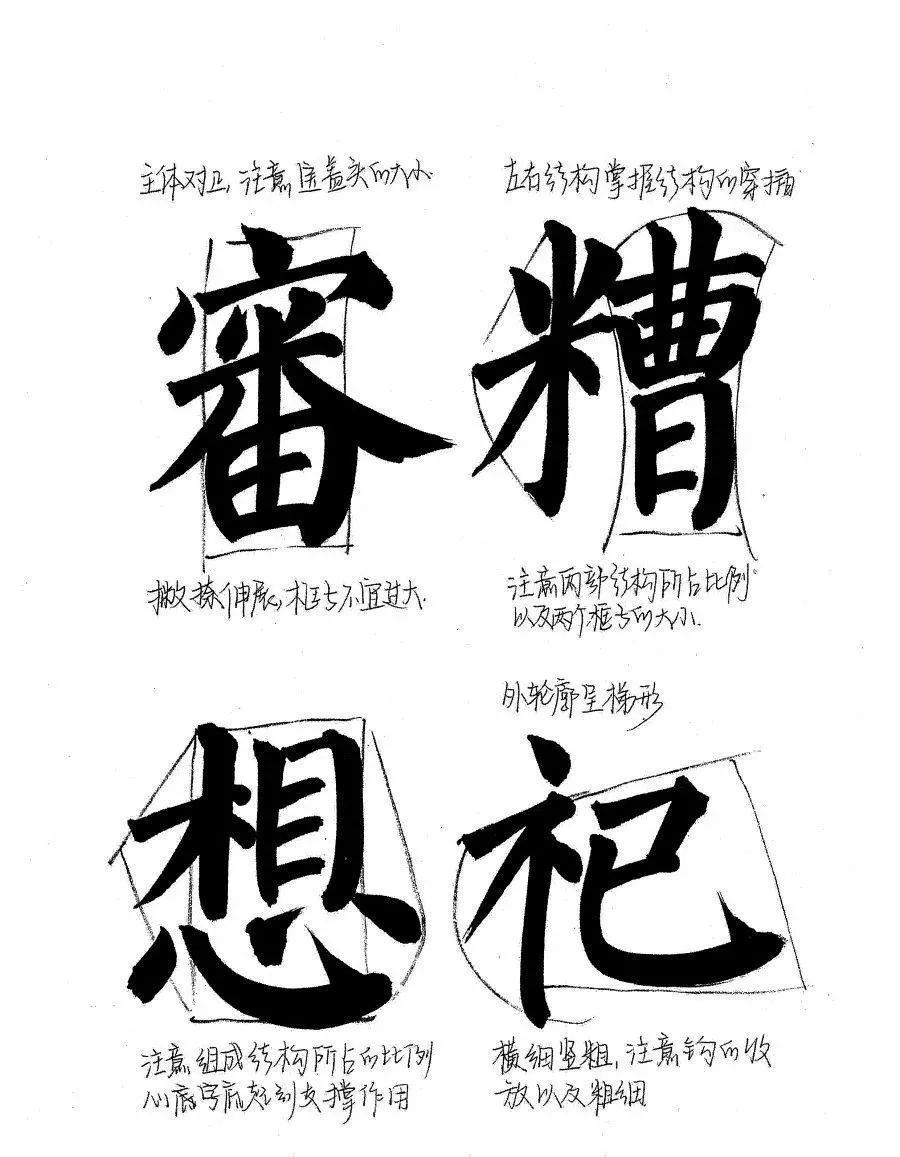 主体对正,注意宝盖头的大小.
審
撇捺伸展,框与不宜过大.
左右结构掌握结构的穿插
糟
注意两部结构所占比例
以及两个框与的大小.
想
注意组成结构所占的比例
心底宽扁起到支撑作用
外轮廓呈梯形
祀
横细竖粗,注意钩的收
放以及粗细